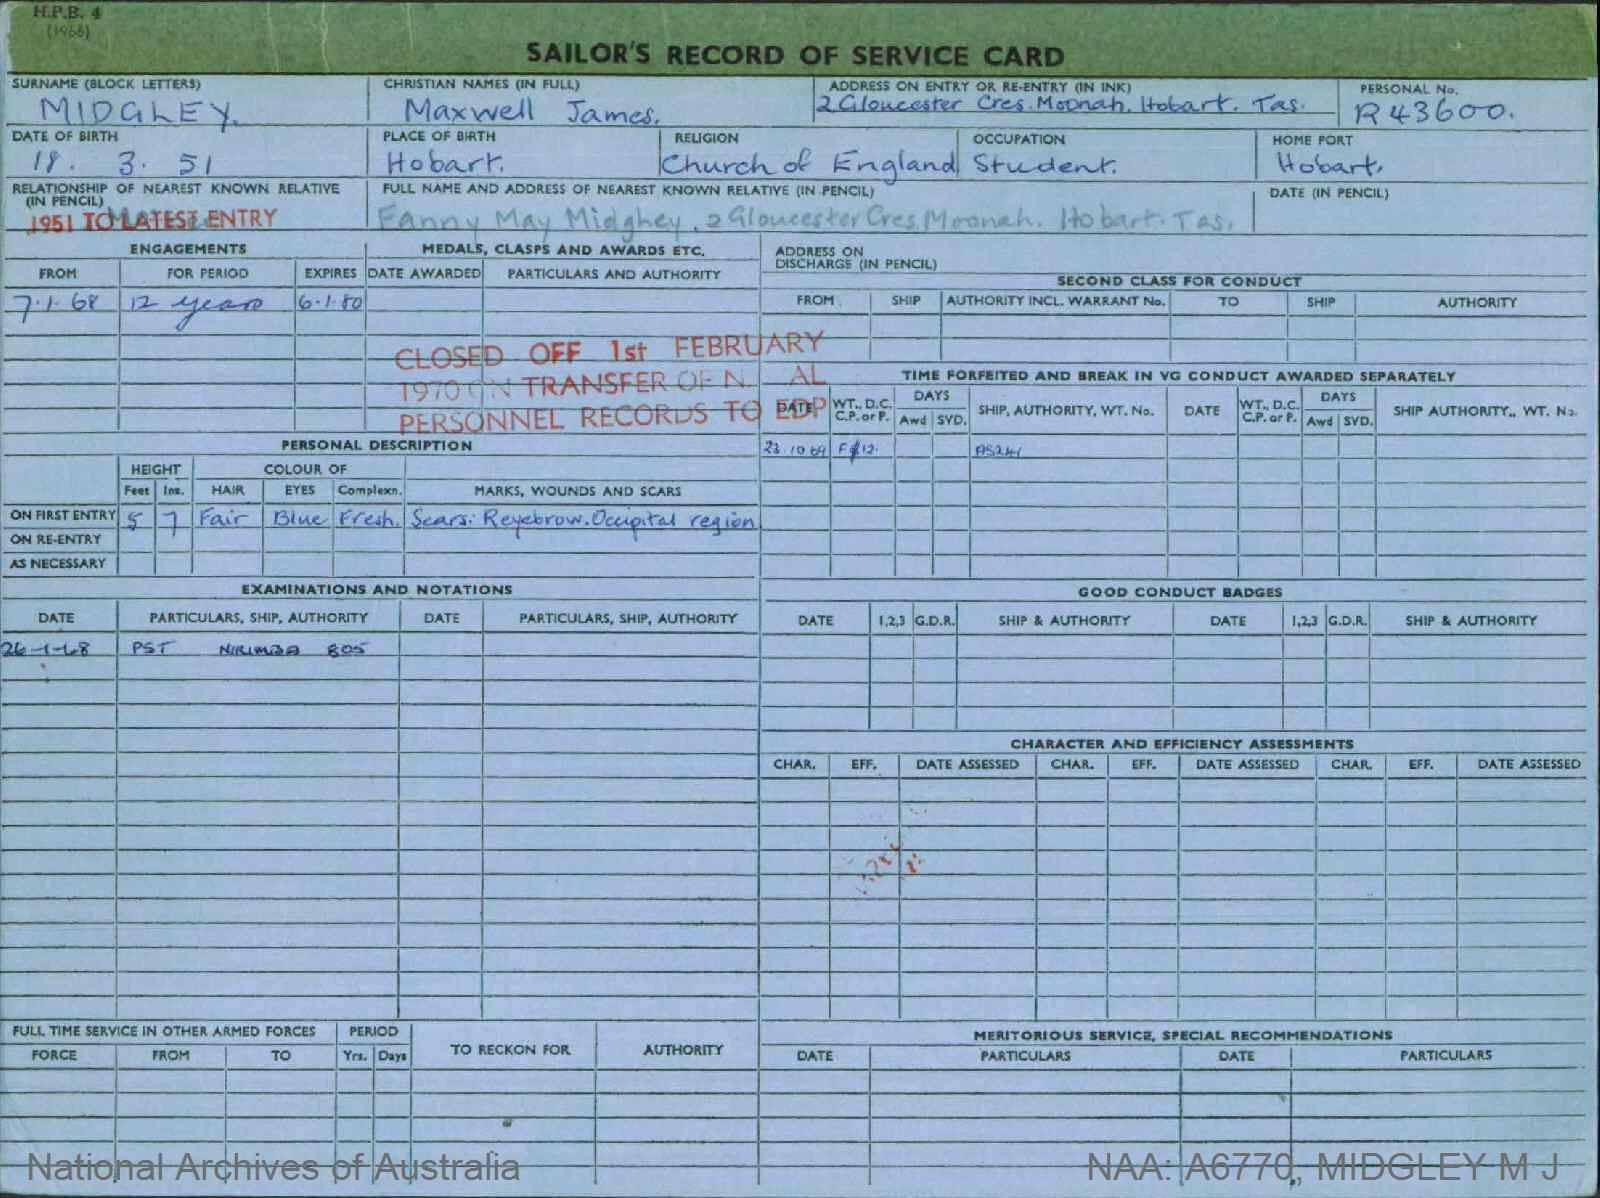 H.P.B. 4
(1966)
SAILOR'S RECORD OF SERVICE CARD
SURNAME (BLOCK LETTERS) CHRISTIAN NAMES (IN FULL) ADDRESS ON ENTRY OR RE-ENTRY (IN INK) PERSONAL No.
MIDGLEY. Maxwell James. 2 Gloucester Cres. Moonah. Hobart. Tas. R43600.
DATE OF BIRTH PLACE OF BIRTH RELIGION OCCUPATION HOME PORT
18. 3. 51 Hobart. Church of England Student. Hobart.
RELATIONSHIP OF NEAREST KNOWN RELATIVE (IN PENCIL) FULL NAME AND ADDRESS OF NEAREST KNOWN RELATIVE (IN PENCIL) DATE (IN PENCIL)
1951 TO LATEST ENTRY Fanny May Midgley. 2 Gloucester Cres, Moonah. Hobart. Tas.
ENGAGEMENTS MEDALS, CLASPS AND AWARDS ETC. ADDRESS ON DISCHARGE (IN PENCIL)
FROM FOR PERIOD EXPIRES DATE AWARDED PARTICULARS AND AUTHORITY
7.1.68 12 years 6.1.80
SECOND CLASS FOR CONDUCT
FROM SHIP AUTHORITY INCL. WARRANT No. TO SHIP AUTHORITY
CLOSED OFF 1st FEBRUARY
1970 ON TRANSFER OF N AL
PERSONNEL RECORDS TO EDP
TIME FORFEITED AND BREAK IN VG CONDUCT AWARDED SEPARATELY
DATE WT., D.C. C.P. or P. DAYS Awd SVD. SHIP, AUTHORITY, WT. No. DATE WT., D.C. C.P. or P. DAYS Awd SVD. SHIP AUTHORITY., WT. No.
23.10.69 12. AS241
PERSONAL DESCRIPTION
HEIGHT COLOUR OF
Feet Ins. HAIR EYES Complexn. MARKS, WOUNDS AND SCARS
ON FIRST ENTRY 5 7 Fair Blue Fresh. Scars: R eyebrow. Occipital region
ON RE-ENTRY
AS NECESSARY
EXAMINATIONS AND NOTATIONS
DATE PARTICULARS, SHIP, AUTHORITY DATE PARTICULARS, SHIP, AUTHORITY
26-1-68 PST NIRIMBA 805
GOOD CONDUCT BADGES
DATE 1,2,3 G.D.R. SHIP & AUTHORITY DATE 1,2,3 G.D.R. SHIP & AUTHORITY
CHARACTER AND EFFICIENCY ASSESSMENTS
CHAR. EFF. DATE ASSESSED CHAR. EFF. DATE ASSESSED CHAR. EFF. DATE ASSESSED
FULL TIME SERVICE IN OTHER ARMED FORCES PERIOD TO RECKON FOR AUTHORITY
FORCE FROM TO Yrs. Days
MERITORIOUS SERVICE, SPECIAL RECOMMENDATIONS
DATE PARTICULARS DATE PARTICULARS
National Archives of Australia NAA: A6770, MIDGLEY M J